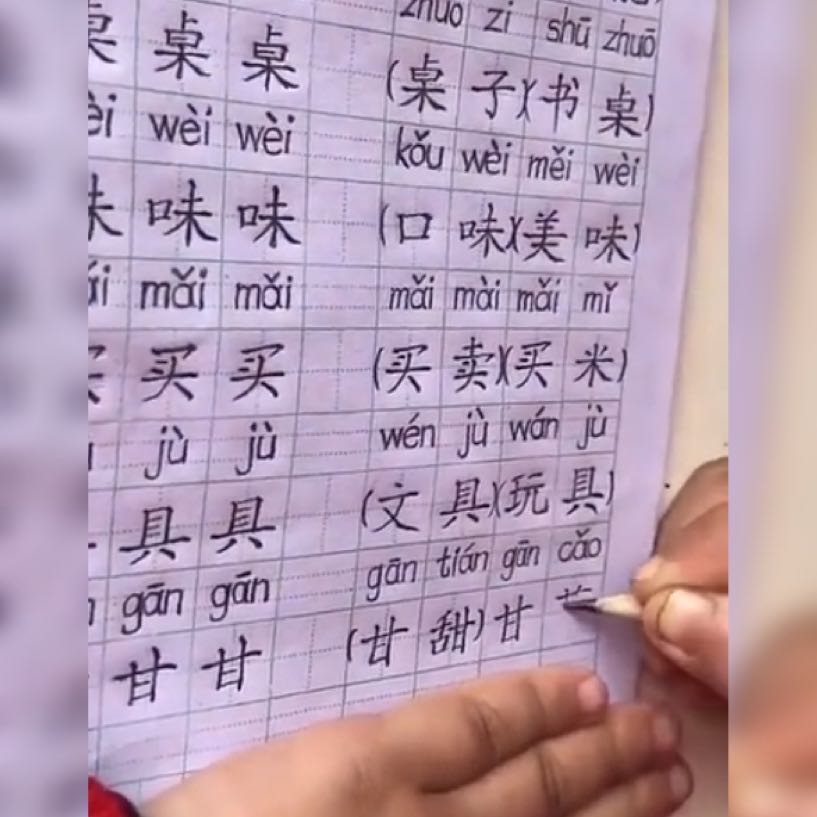 zhuo zi shū zhuō
桌 桌 (桌 子)(书 桌)
wèi wèi kǒu wèi měi wèi
味 味 (口 味)(美 味)
mǎi mǎi mǎi mài mǎi mǐ
买 买 (买 卖)(买 米)
jù jù wén jù wán jù
具 具 (文 具)(玩 具)
gān gān gān tián gān cǎo
甘 甘 (甘 甜) 甘